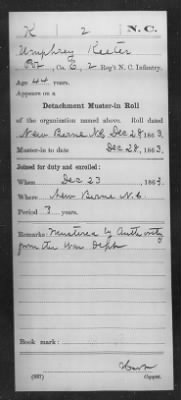 K 2 N.C.
Umphrey Keeter
Pvt, Co. E, 2 Reg't N. C. Infantry.
Age 44 years.
Appears on a
Detachment Muster-in Roll
of the organization named above. Roll dated
New Berne N.C. Dec 28, 1863.
Muster-in to date Dec 28, 1863.
Joined for duty and enrolled:
When Dec 23, 1863.
Where New Berne N.C.
Period 3 years.
Remarks: Mustered by Authority
from the War Dept
Book mark:
(337) Copyist.